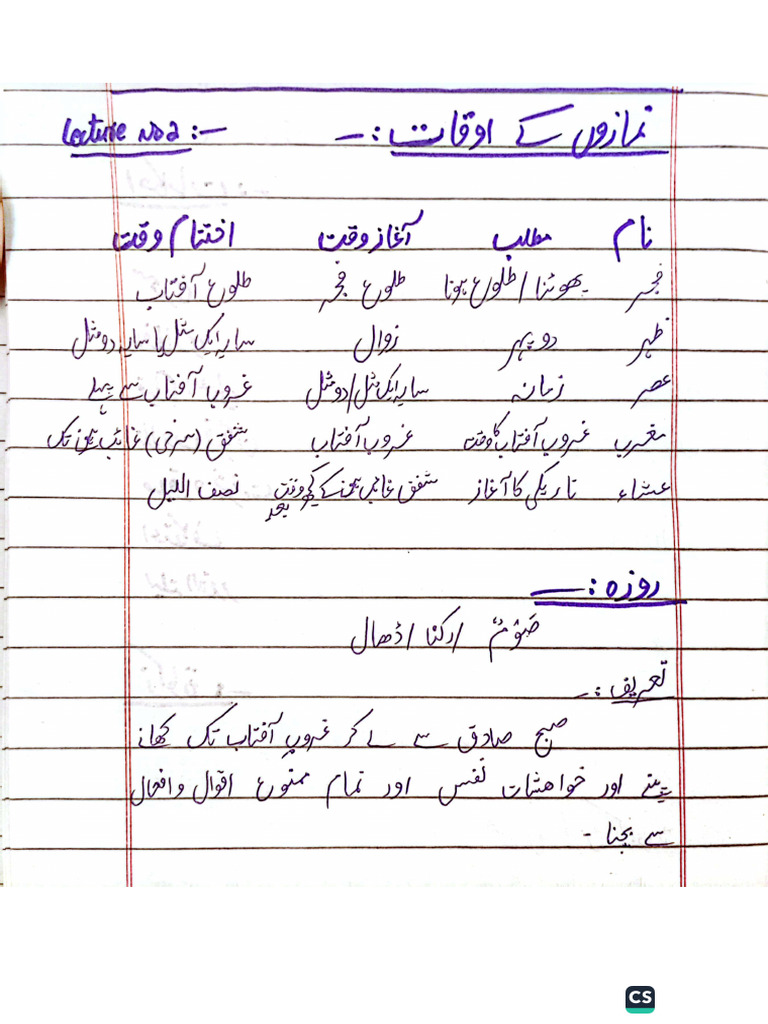 نمازوں کے اوقات :- Lecture No 2 :-
نام مطلب آغاز وقت اختتام وقت
فجر پھوٹنا / طلوع ہونا طلوع فجر طلوع آفتاب
ظہر دوپہر زوال سایہ ایک مثل یا سایہ دو مثل
عصر زمانہ سایہ ایک مثل / دو مثل غروب آفتاب سے پہلے
مغرب غروب آفتاب کا وقت غروب آفتاب شفق (سرخی) غائب ہونے تک
عشاء تاریکی کا آغاز شفق غائب ہونے کے کچھ وقت بعد نصف اللیل
روزہ :-
صَوْمٌ / رکنا / ڈھال
تعریف :-
صبح صادق سے لے کر غروبِ آفتاب تک کھانے
پینے اور خواہشات نفس اور تمام ممنوع اقوال و افعال
سے بچنا -
CS